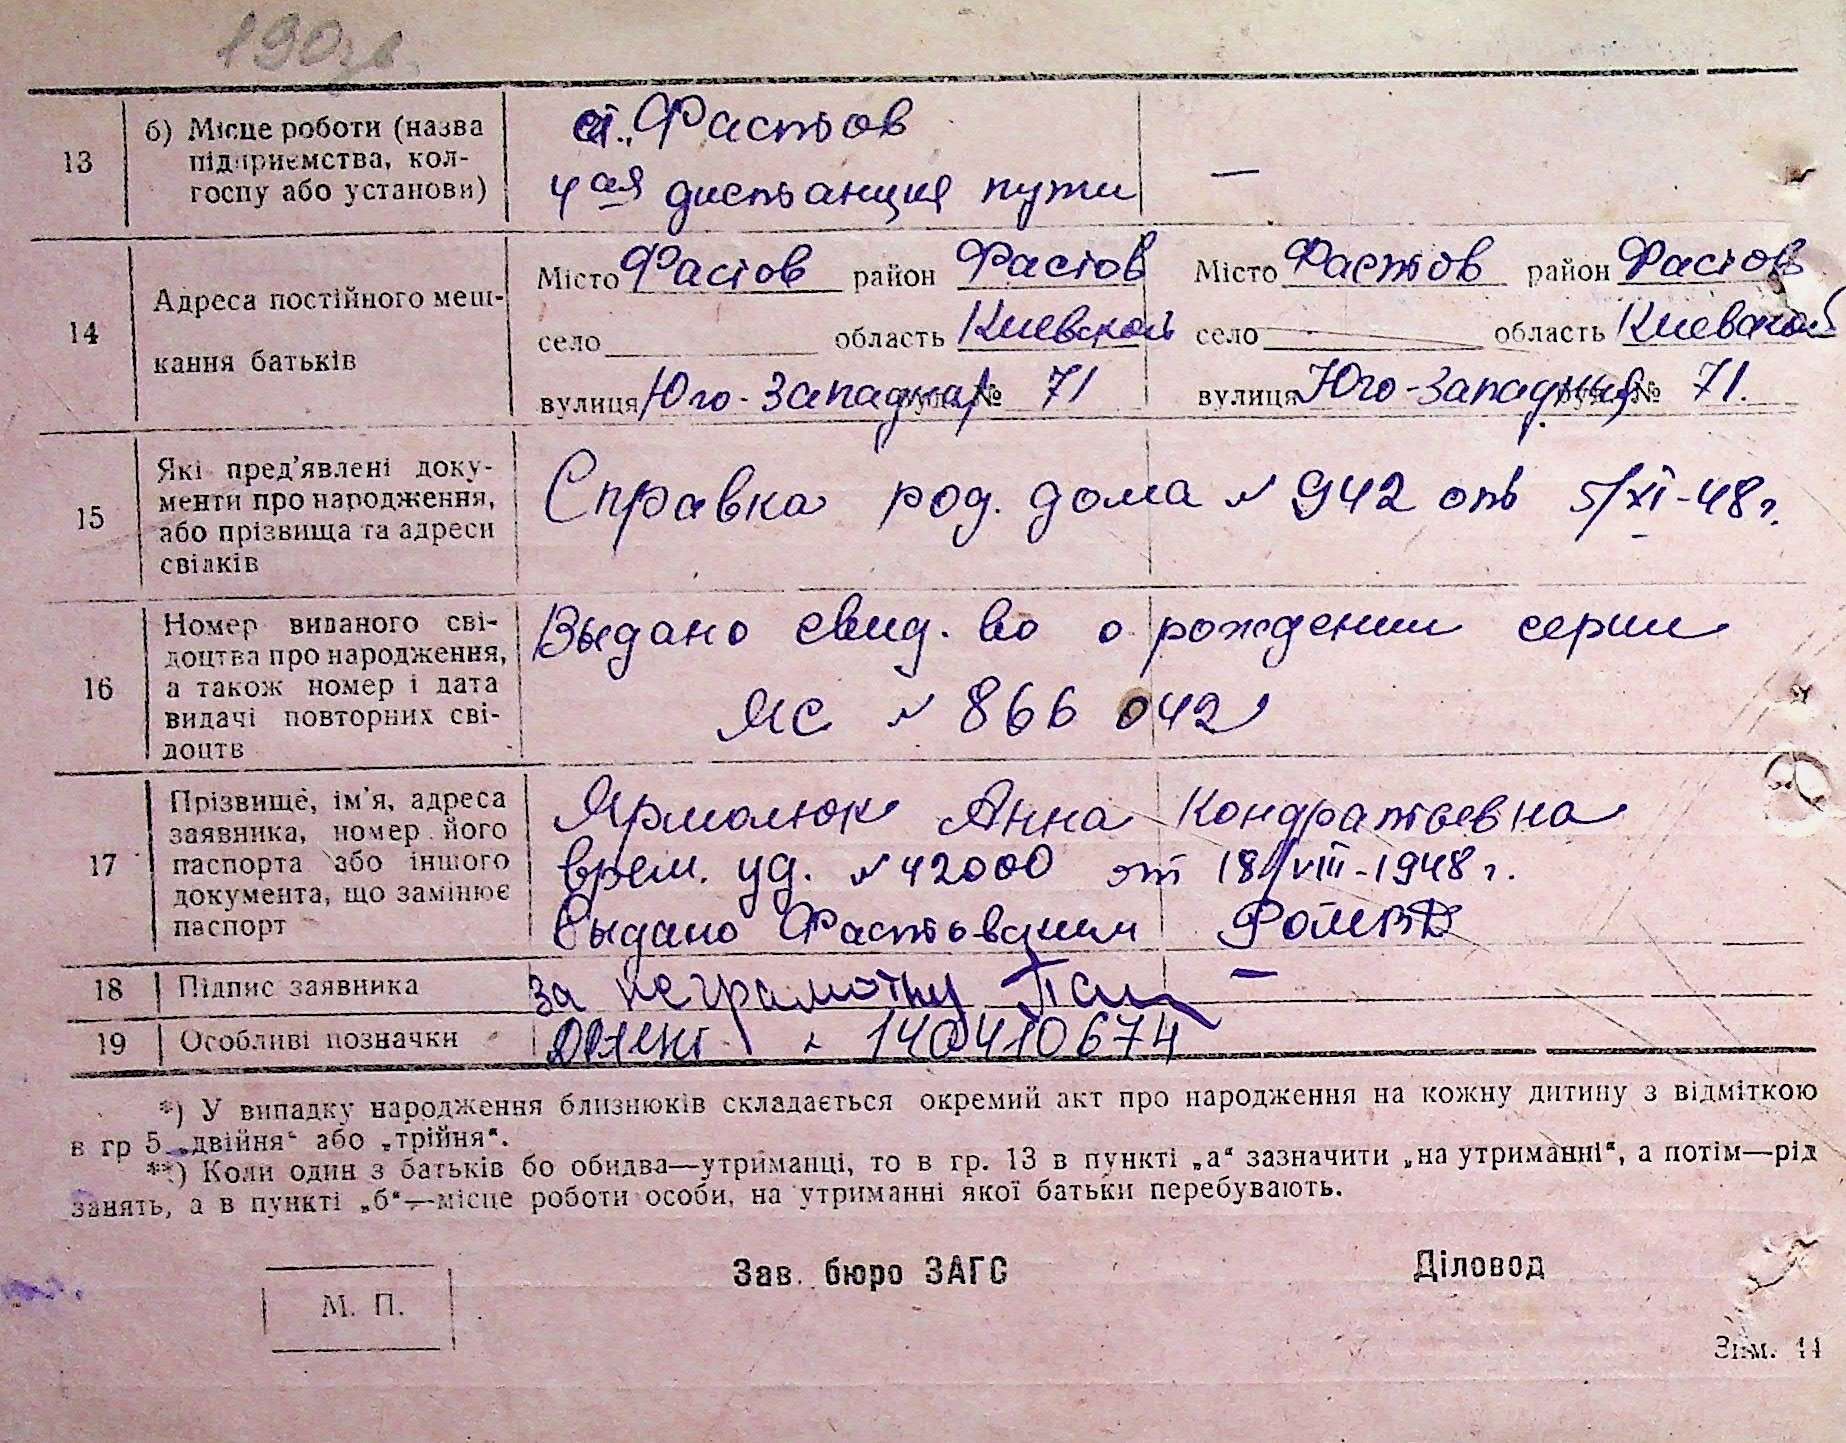 190зв.
13 б) Місце роботи (назва підприємства, колгоспу або установи)
ст. Фастов
4ая дистанция пути —
14 Адреса постійного мешкання батьків
Місто Фастов район Фастов Місто Фастов район Фастов
село область Киевской село область Киевской
вулиця Юго-Западная № 71 вулиця Юго-Западная № 71.
15 Які пред'явлені документи про народження, або прізвища та адреси свідків
Справка род. дома № 942 от 5/XI-48 г.
16 Номер виданого свідоцтва про народження, а також номер і дата видачі повторних свідоцтв
Выдано свид. во о рождении серии
ЯС № 866042
17 Прізвище, ім'я, адреса заявника, номер його паспорта або іншого документа, що замінює паспорт
Ярмолюк Анна Кондратьевна
врем. уд. № 42000 от 18/VIII-1948 г.
Выдано Фастовским РОМВД
18 Підпис заявника за неграмотну —
19 Особливі позначки 140410674
*) У випадку народження близнюків складається окремий акт про народження на кожну дитину з відміткою
в гр 5 „двійня“ або „трійня“.
**) Коли один з батьків бо обидва—утриманці, то в гр. 13 в пункті „а“ зазначити „на утриманні“, а потім—рід
занять, а в пункті „б“—місце роботи особи, на утриманні якої батьки перебувають.
М. П. Зав. бюро ЗАГС Діловод
Зам. 44